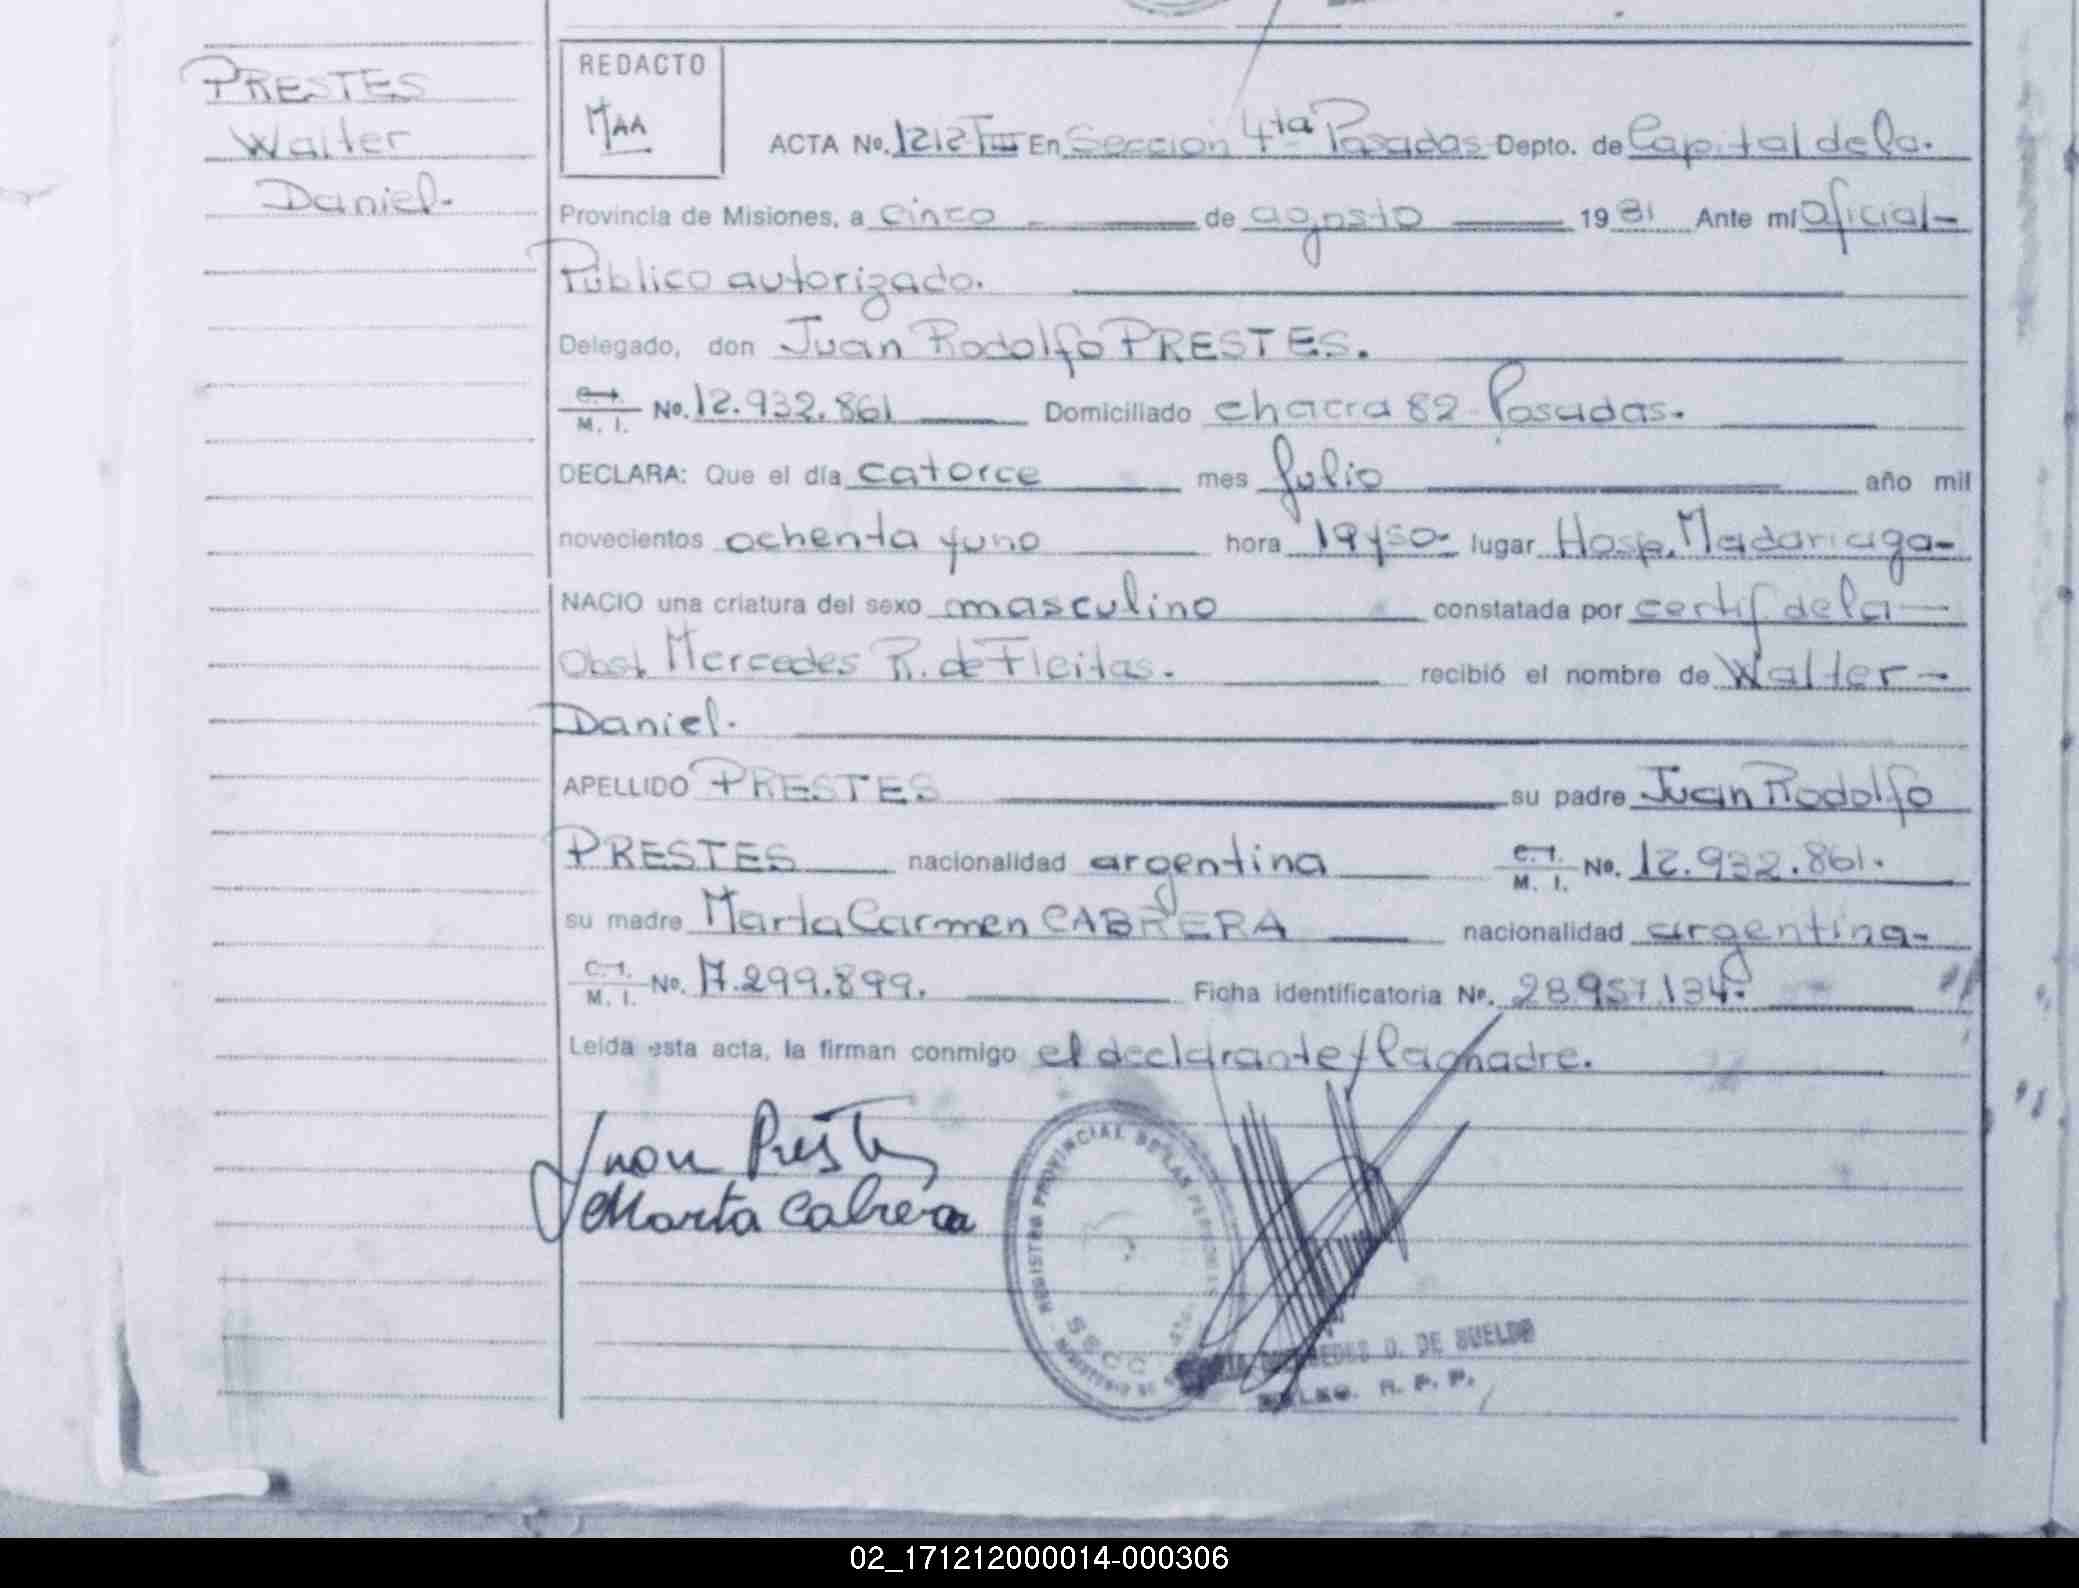 PRESTES
Walter
Daniel.
REDACTO
MAA
ACTA No. 1212 T III En Sección 4ta Posadas Depto. de Capital de la.
Provincia de Misiones, a cinco de agosto 1981 Ante mí Oficial
Público autorizado.
Delegado, don Juan Rodolfo PRESTES.
C.I. M. I. No. 12.932.861 Domiciliado chacra 82 Posadas.
DECLARA: Que el día catorce mes Julio año mil
novecientos ochenta y uno hora 19 y 50 lugar Hosp. Madariaga
NACIO una criatura del sexo masculino constatada por certif de la
Obst. Mercedes R. de Fleitas. recibió el nombre de Walter
Daniel.
APELLIDO PRESTES su padre Juan Rodolfo
PRESTES nacionalidad argentina C.I. M. I. No. 12.932.861.
su madre Marta Carmen CABRERA nacionalidad argentina
C.I. M. I. No. 17.299.899. Ficha identificatoria No. 28.957.134.
Leída esta acta, la firman conmigo el declarante y la madre.
Juan Prestes
Marta Cabrera
REGISTRO PROVINCIAL DE LAS PERSONAS
SECC
D. DE SUELDO
R. P. P.
02_171212000014-000306